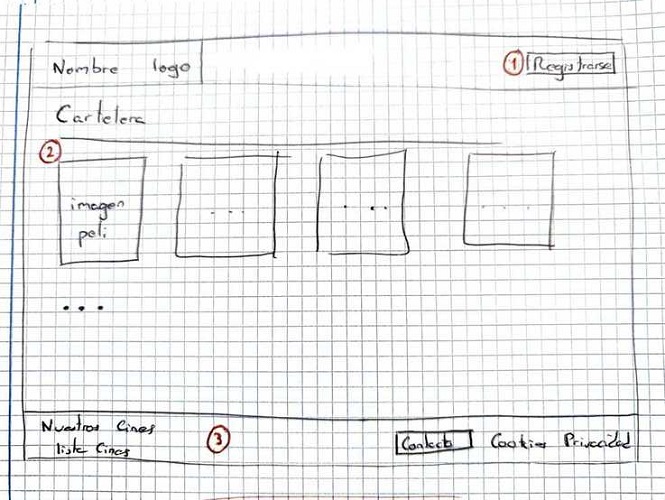 Nombre logo
1 Registrarse
Cartelera
2
imagen
peli
...
...
...
...
Nuestros Cines
lista Cines
3
Contacto Cookies Privacidad